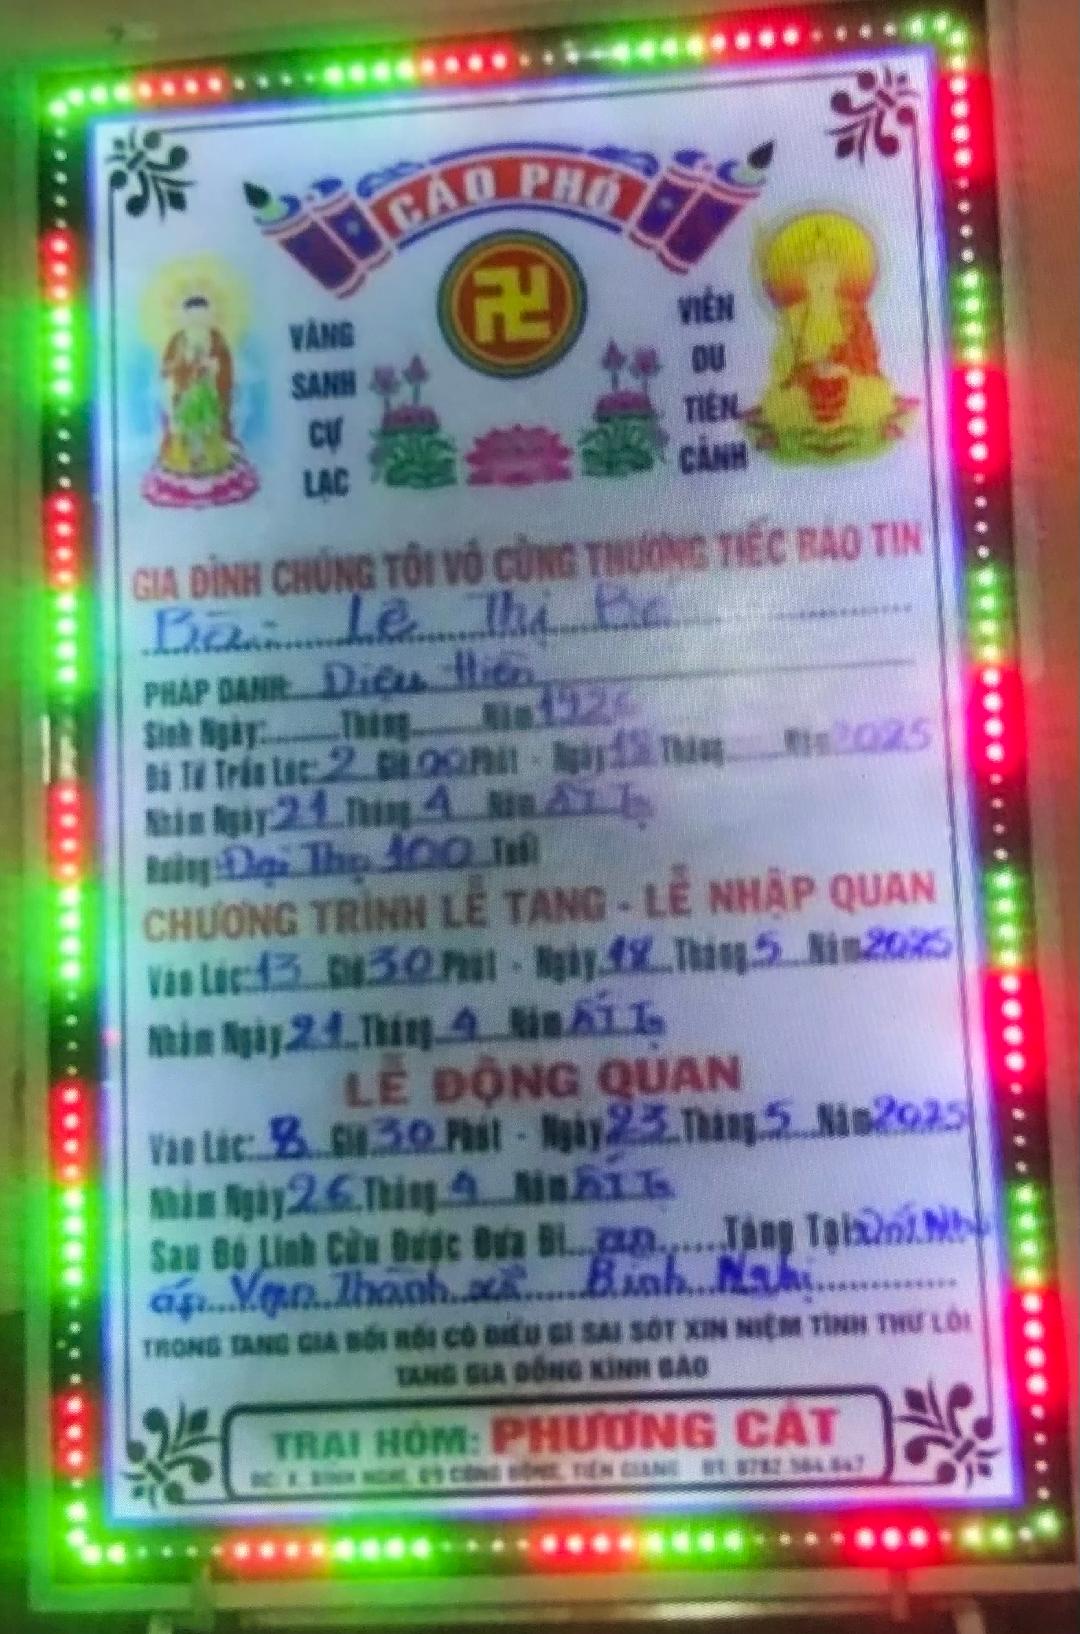 CÁO PHÓ
VÃNG SANH CỰ LẠC
VIÊN DU TIÊN CẢNH
GIA ĐÌNH CHÚNG TÔI VÔ CÙNG THƯƠNG TIẾC BÁO TIN
Bà: Lê Thị Be
PHÁP DANH: Diệu Hiền
Sinh Ngày:......Tháng......Năm 1926
Đã Từ Trần Lúc: 2 Giờ 00 Phút - Ngày 18 Tháng......Năm 2025
Nhằm Ngày 21 Tháng 4 Năm Ất Tỵ
Hưởng Đại Thọ 100 Tuổi
CHƯƠNG TRÌNH LỄ TANG - LỄ NHẬP QUAN
Vào Lúc: 13 Giờ 30 Phút - Ngày 18 Tháng 5 Năm 2025
Nhằm Ngày 21 Tháng 4 Năm ẤT Tỵ
LỄ ĐỘNG QUAN
Vào Lúc: 8 Giờ 30 Phút - Ngày 23 Tháng 5 Năm 2025
Nhằm Ngày 26 Tháng 4 Năm ẤT Tỵ
Sau Đó Linh Cữu Được Đưa Đi an Táng Tại Đất Nhà
ấp Vạn Thành xã Bình Nghị
TRONG TANG GIA BỐI RỐI CÓ ĐIỀU GÌ SAI SÓT XIN NIỆM TÌNH THỨ LỖI
TANG GIA ĐỒNG KÍNH BÁO
TRẠI HÒM: PHƯƠNG CÁT
ĐC: X. BÌNH NGHỊ, GÒ CÔNG ĐÔNG, TIỀN GIANG